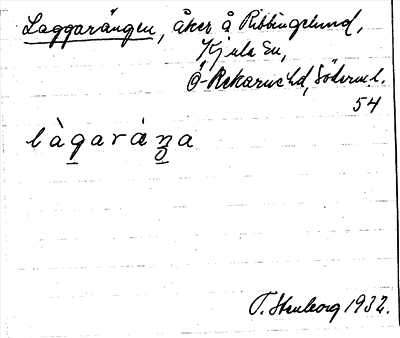 Laggarängen, åker å Ribbingelund,
Kjula sn,
Ö-Rekarne hd, Söderm. l.
54
làgaráŋa
T. Stenborg 1932.